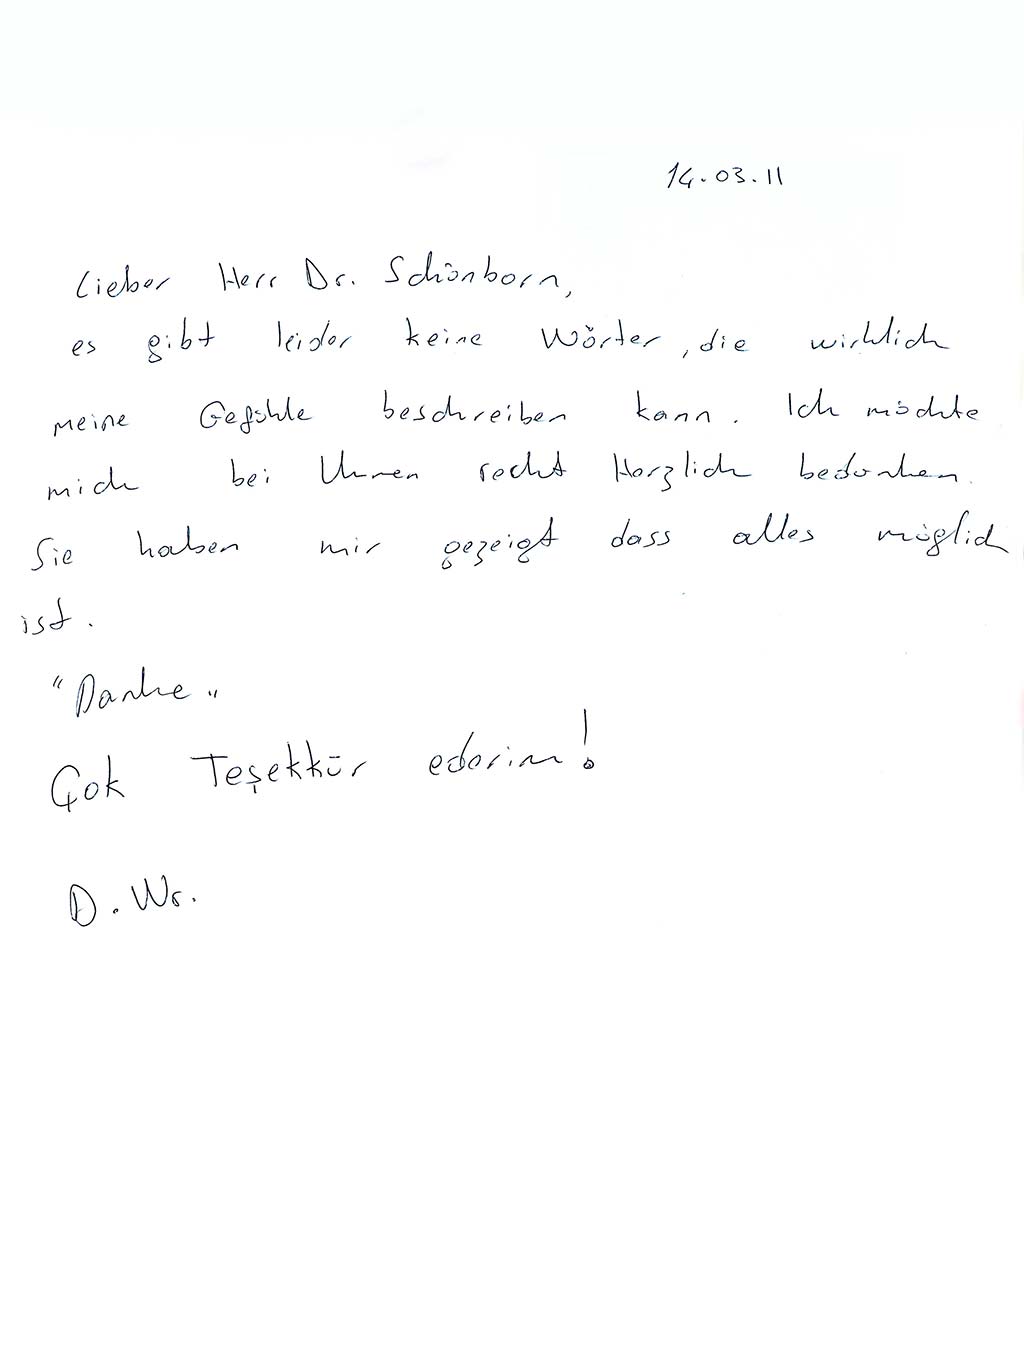 14.03.11
Lieber Herr Dr. Schönborn,
es gibt leider keine Wörter, die wirklich
meine Gefühle beschreiben kann. Ich möchte
mich bei Ihnen recht Herzlich bedanken.
Sie haben mir gezeigt dass alles möglich
ist.
"Danke"
Çok Teşekkür ederim!
D. Wr.